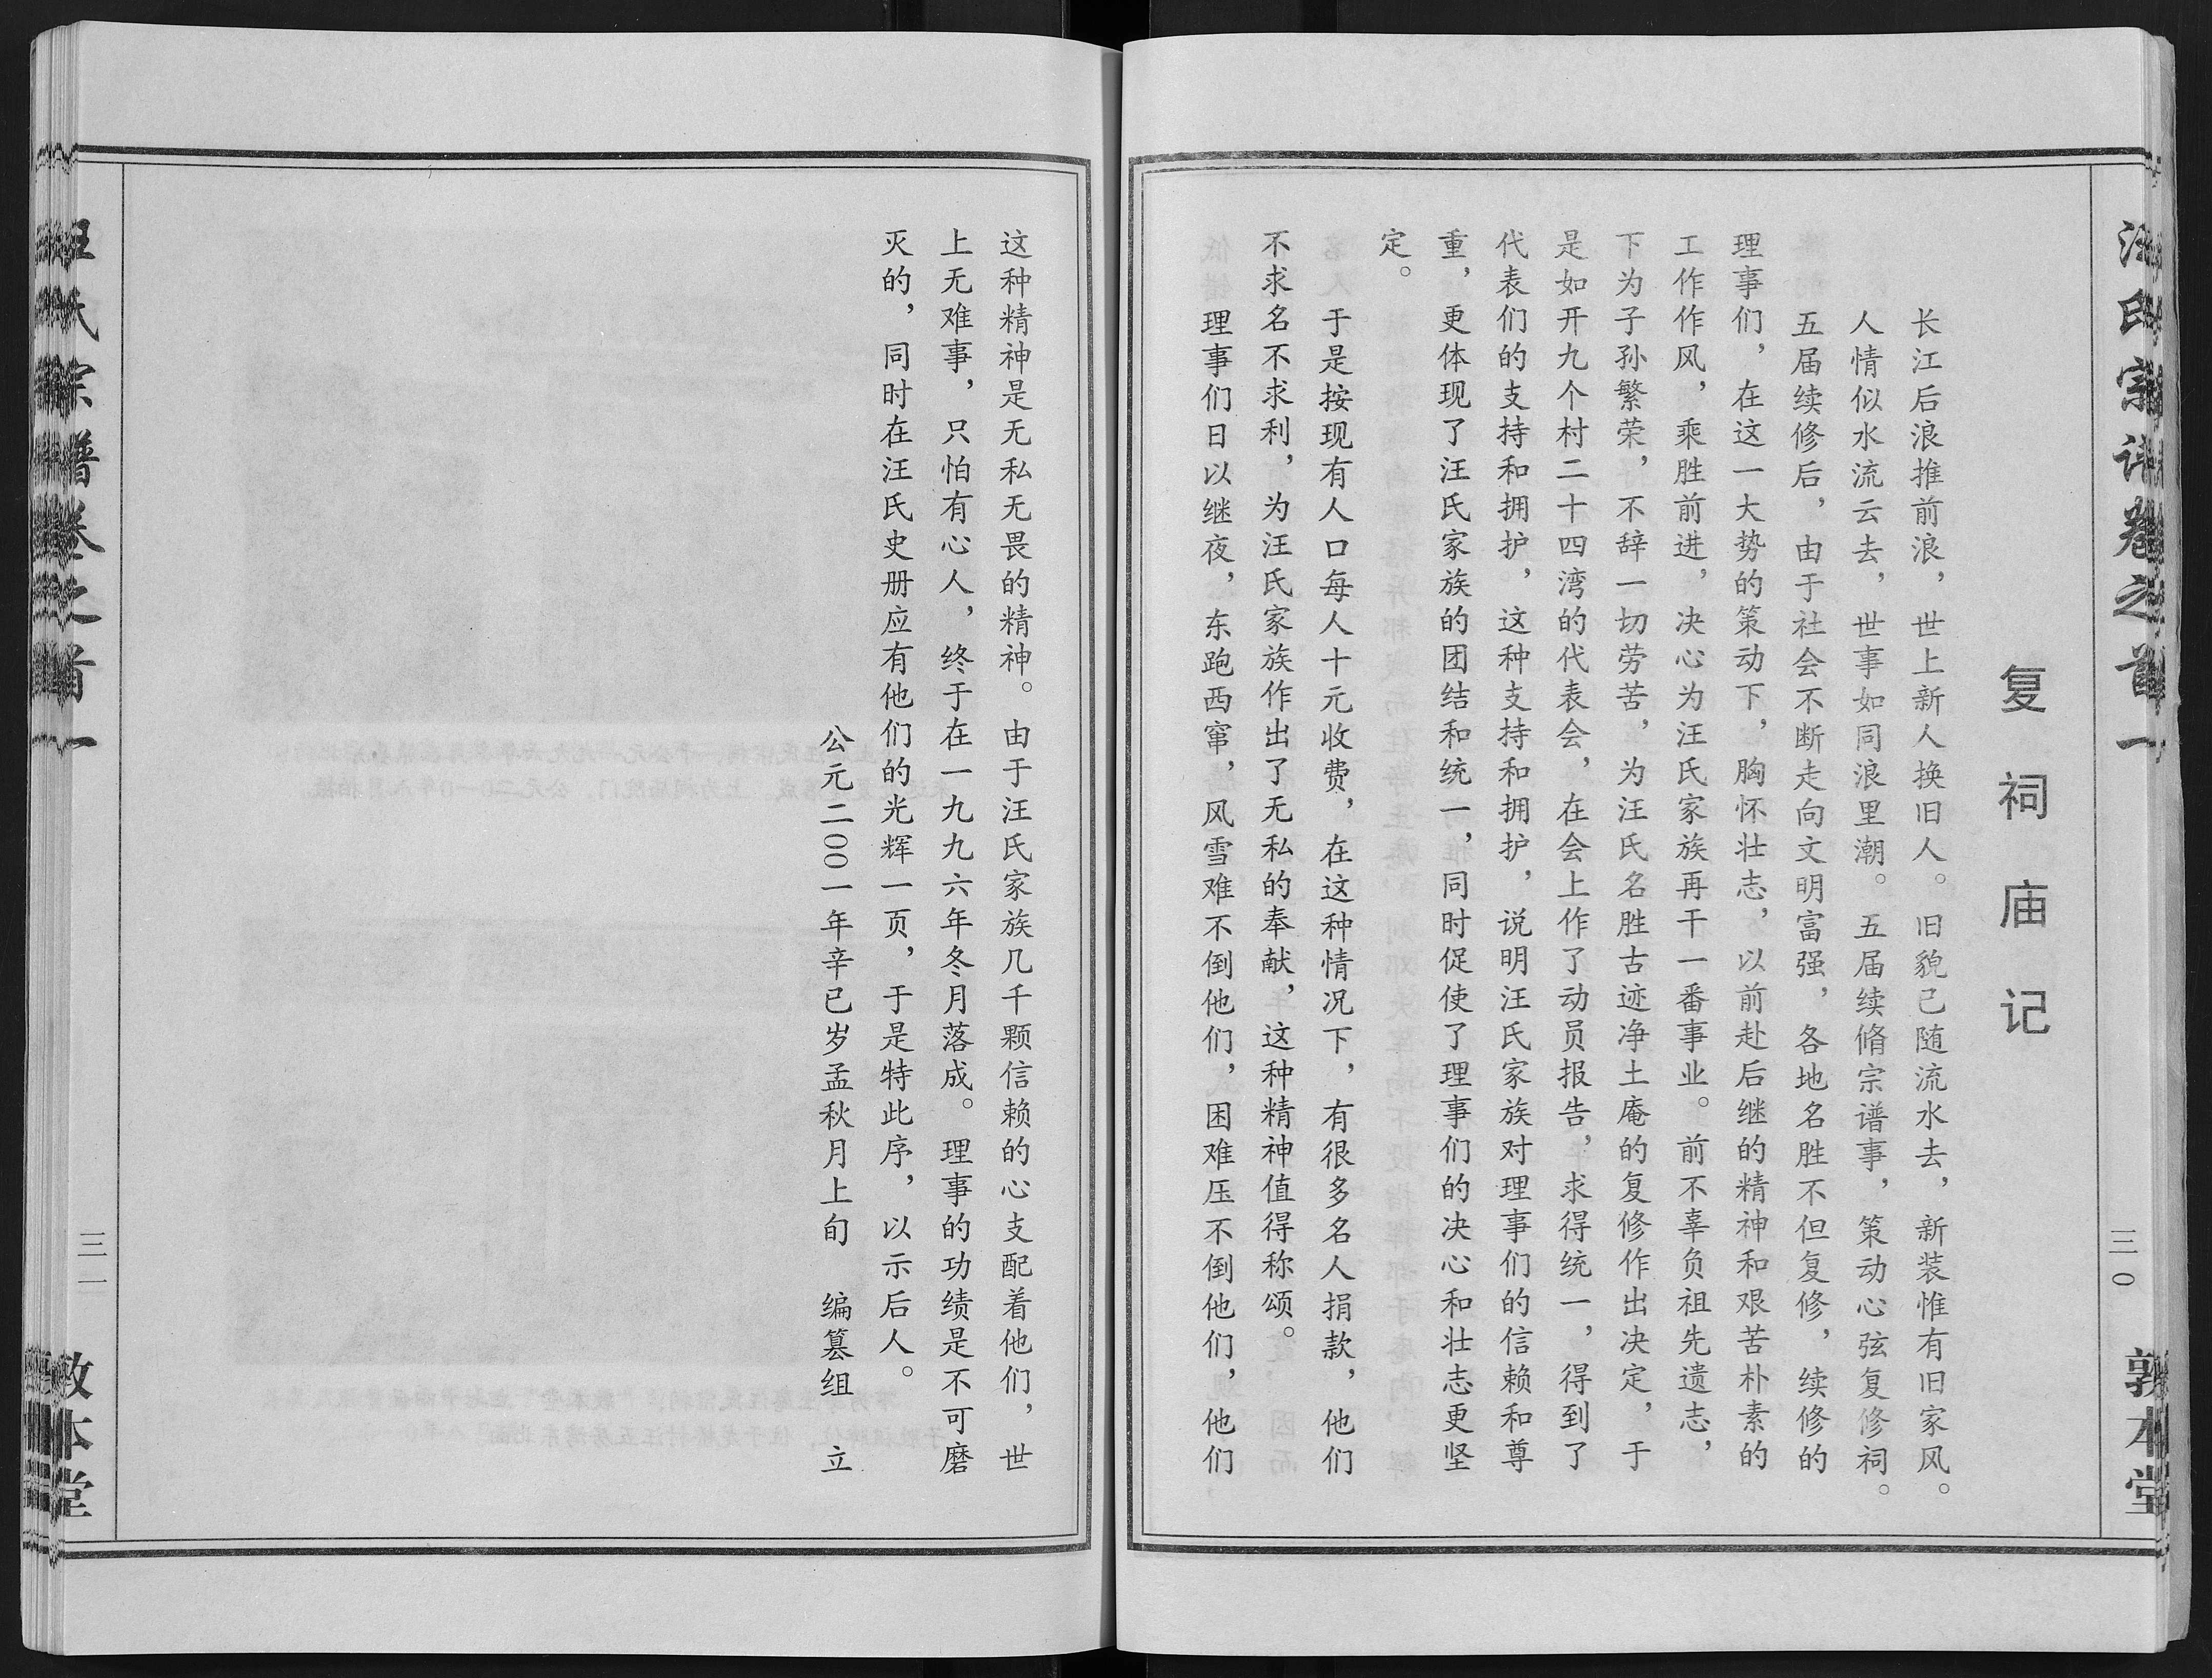 汪氏宗谱卷之首一
三〇
敦本堂
复祠庙记
长江后浪推前浪，世上新人换旧人。旧貌已随流水去，新装惟有旧家风。
人情似水流云去，世事如同浪里潮。五届续脩宗谱事，策动心弦复修祠。
五届续修后，由于社会不断走向文明富强，各地名胜不但复修，续修的
理事们，在这一大势的策动下，胸怀壮志，以前赴后继的精神和艰苦朴素的
工作作风，乘胜前进，决心为汪氏家族再干一番事业。前不辜负祖先遗志，
下为子孙繁荣，不辞一切劳苦，为汪氏名胜古迹净土庵的复修作出决定，于
是如开九个村二十四湾的代表会，在会上作了动员报告，求得统一，得到了
代表们的支持和拥护，这种支持和拥护，说明汪氏家族对理事们的信赖和尊
重，更体现了汪氏家族的团结和统一，同时促使了理事们的决心和壮志更坚
定。
于是按现有人口每人十元收费，在这种情况下，有很多名人捐款，他们
不求名不求利，为汪氏家族作出了无私的奉献，这种精神值得称颂。
理事们日以继夜，东跑西窜，风雪难不倒他们，困难压不倒他们，他们
这种精神是无私无畏的精神。由于汪氏家族几千颗信赖的心支配着他们，世
上无难事，只怕有心人，终于在一九九六年冬月落成。理事的功绩是不可磨
灭的，同时在汪氏史册应有他们的光辉一页，于是特此序，以示后人。
公元二〇〇一年辛已岁孟秋月上旬 编篡组 立
汪氏宗谱卷之首一
三一
敦本堂